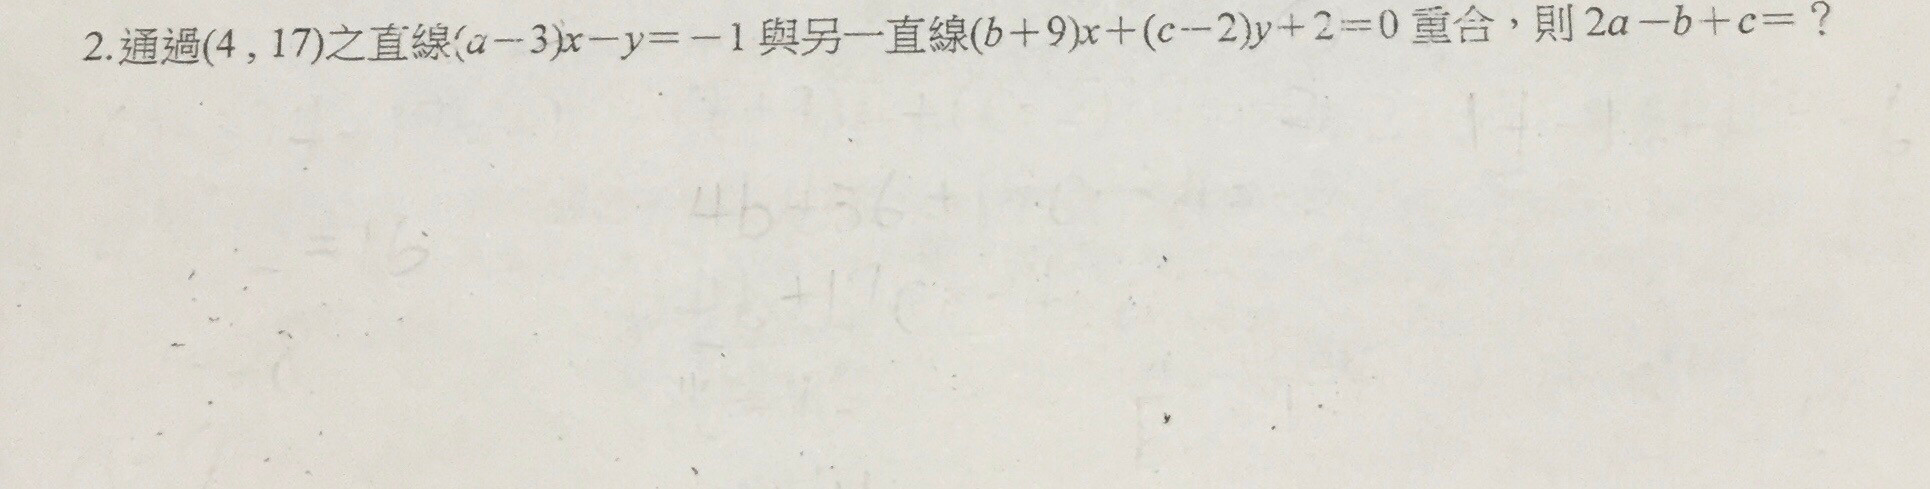 2.通過(4 , 17)之直線(a－3)x－y＝－1 與另一直線(b＋9)x＋(c－2)y＋2＝0 重合，則 2a－b＋c＝？